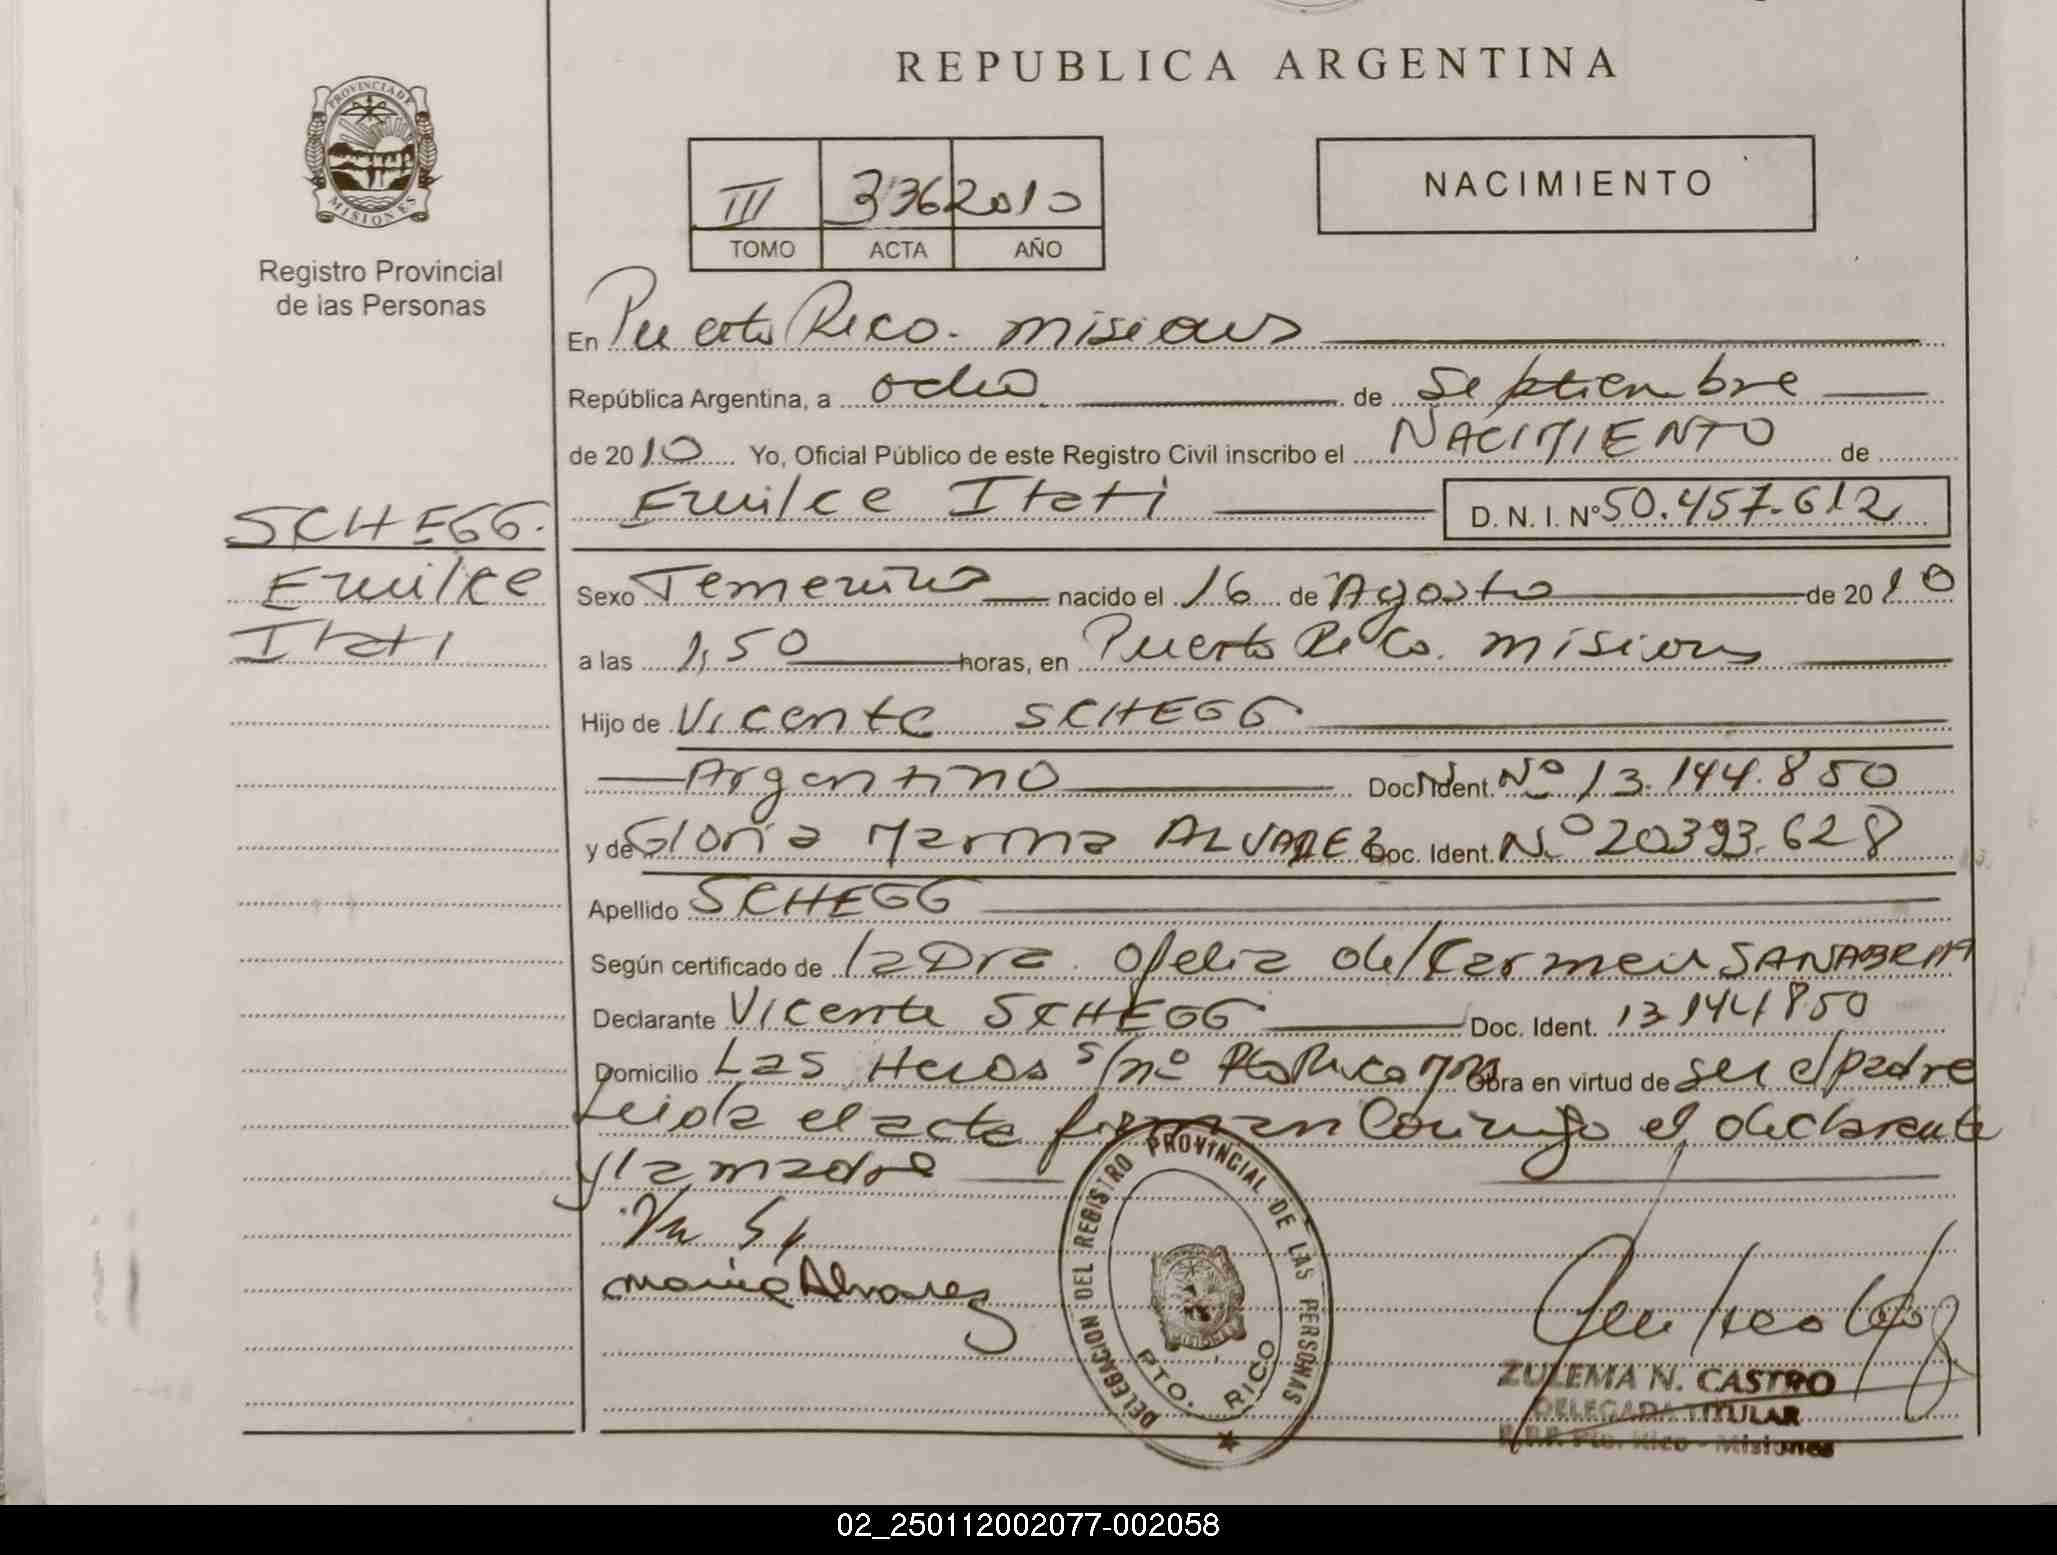 REPUBLICA ARGENTINA
PROVINCIA DE
MISIONES
Registro Provincial
de las Personas
III 336 2010
TOMO ACTA AÑO
NACIMIENTO
En Puerto Rico. Misiones
República Argentina, a ocho de Septiembre
de 2010 Yo, Oficial Público de este Registro Civil inscribo el NACIMIENTO de
Emilce Itati D. N. I. Nº 50.457.612
SCHEGG.
Emilce
Itati
Sexo Femenino nacido el 16 de Agosto de 2010
a las 1,50 horas, en Puerto Rico. Misiones
Hijo de Vicente SCHEGG
Argentino Doc. Ident. Nº 13.144.850
y de Gloria Marina ALVAREZ Doc. Ident. Nº 20393.628
Apellido SCHEGG
Según certificado de la Dra. Ofelia del Carmen SANABRIA
Declarante Vicente SCHEGG Doc. Ident. 13144850
Domicilio Las Heras s/nº Pto Rico Mnes Obra en virtud de ser el padre
Leida el acta firman conmigo el declarante
y la madre
Alvarez
DELEGACION DEL REGISTRO PROVINCIAL DE LAS PERSONAS
PTO. RICO
ZULEMA N. CASTRO
DELEGADA TITULAR
R.P.P. Pto. Rico - Misiones
02_250112002077-002058